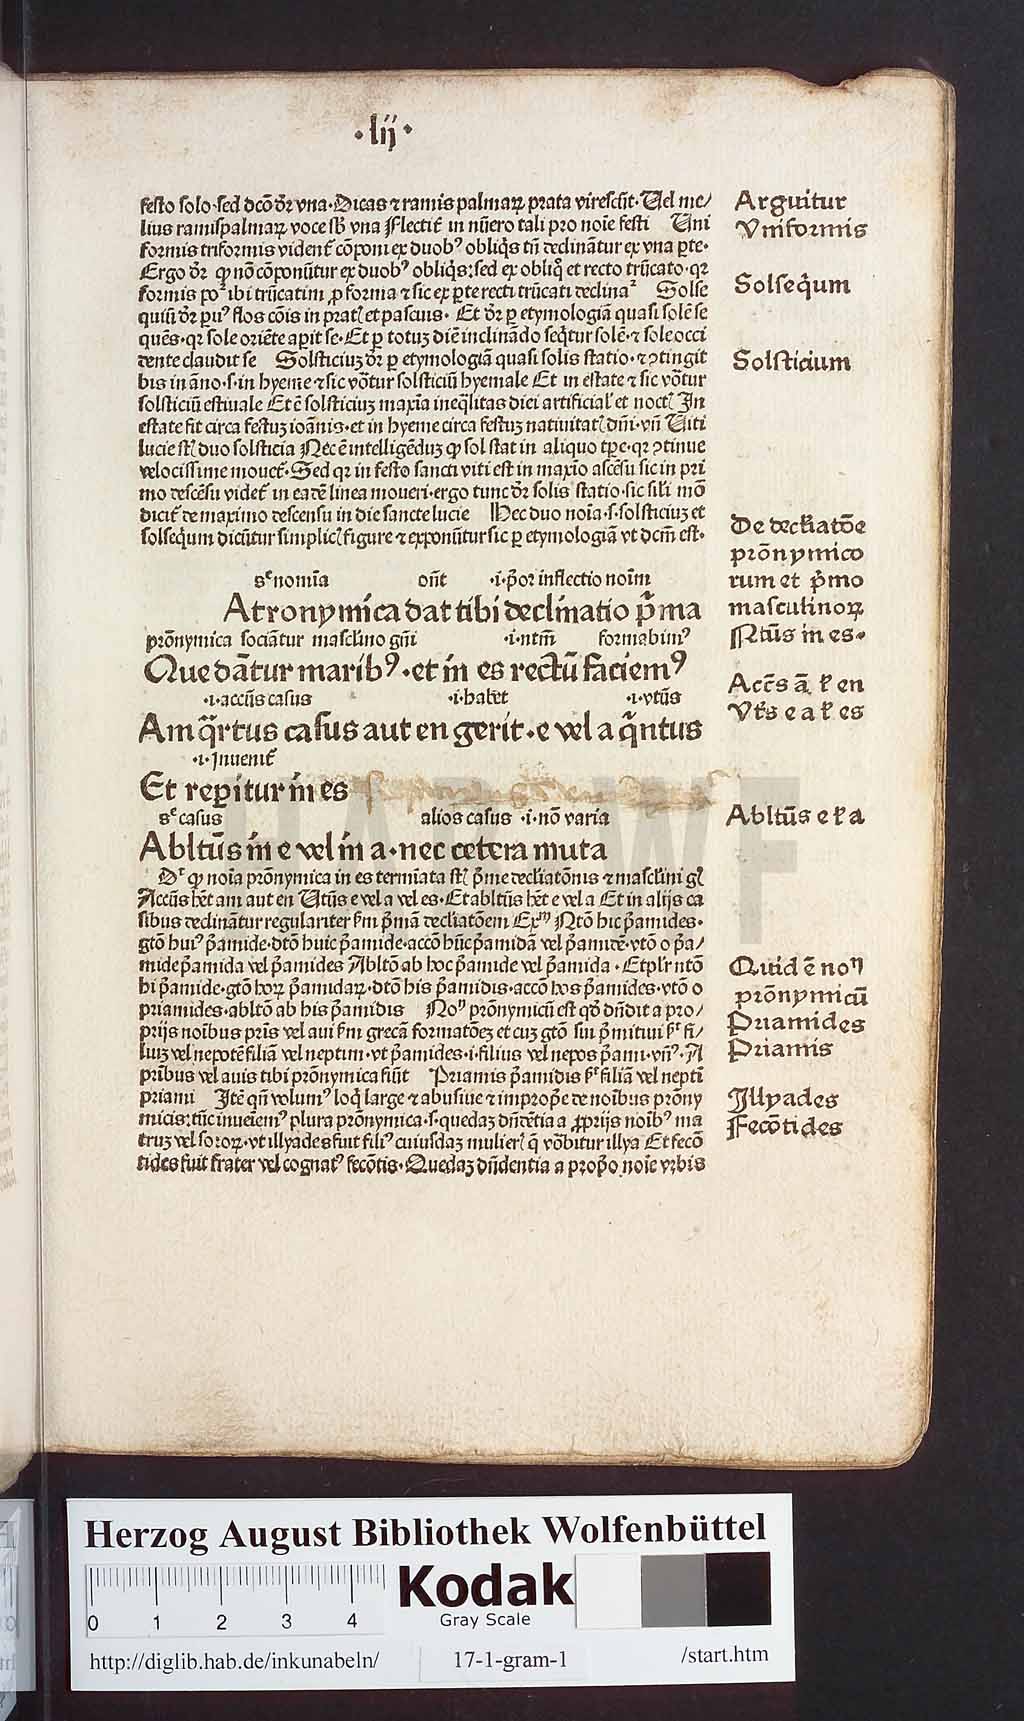 ·lij·
festo solo·sed dcō dr̄ vna·Dicas ⁊ ramis palmaꝝ prata virescūt·Vel me/
lius ramispalmaꝝ voce sb̄ vna Flectit᷑ in nūero tali pro noīe festi Uni
formis triformis vident᷑ cōponi ex duobꝰ obliq̄s tn̄ declinātur ex vna ꝑte·
Ergo dr̄ ꝙ nō cōponūtur ex duobꝰ obliq̄s: sed ex obliq̄ et recto trūcato·qꝛ
formis poꝰ ibi trūcatim ꝓ forma ⁊ sic ex ꝑte recti trūcati declinaꝰ Solse
quiū dr̄ ꝑuꝰ flos cōis in pratꝭ et pascuis· Et dr̄ ꝑ etymologiā quasi solē se
quēs·qꝛ sole oriēte aꝑit se·Et ꝑ totuȝ diē inclināndo seq̄tur solē·⁊ sole occi
dente claudit se Solsticiuȝ dr̄ ꝑ etymologiā quasi solis statio·⁊ ↄtingit
bis in āno·s·in hyeme ⁊ sic vōtur solsticiū hyemale Et in estate ⁊ sic vōtur
solsticiū estiuale Et ē solsticiuȝ maxīa ineq̄litas diei artificialꝭ et noctꝭ In
estate fit circa festuȝ ioānis·et in hyeme circa festuȝ natiuitatꝭ dn̄i·vn̄ Viti
lucie st̄ duo solsticia Nec ē intelligēduȝ ꝙ sol stat in aliquo tꝑe·qꝛ ↄtinue
velocissime mouet᷑·Sed qꝛ in festo sancti viti est in maxīo ascēsu sic in pri
mo descēsu videt᷑ in eadē linea moueri·ergo tunc dr̄ solis statio·sic sili mō
dicit᷑ de maximo descensu in die sancte lucie Hec duo noīa·s·solsticiuȝ et
solseq̄um dicūtur simplicꝭ figure ⁊ exponūtur sic ꝑ etymologiā vt dcm̄ est·
sᷓ nomīa on̄t ·i·p̄or inflectio noīm
Atronymica dat tibi declinatio p̄ma
prōnymica sociātur masclīno gn̄i ·i·ntm̄ formabimꝰ
Que dātur maribꝰ·et in es rectū faciemꝰ
·i·accūs casus ·i·habet ·i·vtūs
Am q̄rtus casus aut en gerit·e vel a q̄ntus
·i·Inuenit᷑
Et reꝑitur in es
sᷓ casus alios casus ·i·nō varia
Abltūs in e vel in a·nec cetera muta
Dꝛ ꝙ noīa prōnymica in es termīata st̄ p̄me decliatōnis ⁊ masclīni gꝭ
Accūs hēt am aut en Vtūs e vel a vel es·Et abltūs hēt e vel a Et in alijs ca
sibus declinātur regulariter ẜm p̄mā decliatōem Exᵐ Ntō hic p̄amides·
gtō huiꝰ p̄amide·dtō huic p̄amide·accō hūc p̄amidā vel p̄amidē·vtō o p̄a/
mide p̄amida vel p̄amides Abltō ab hoc p̄amide vel p̄amida·Et plr̄ ntō
hi p̄amide·gtō hoꝝ p̄amidaꝝ·dtō his p̄amidis·accō hos p̄amides·vtō o
priamides·abltō ab his p̄amidis Noᷠ prōnymicū est qd̄ dn̄dit a pro/
prijs noībus pr̄is vel aui ẜm grecā formatōeȝ et cuȝ gtō sui p̄mitiui ẜꝛ fi/
liuȝ vel nepotē filiā vel neptim·vt p̄amides·i·filius vel nepos p̄ami·vn̄ꝰ·A
prībus vel auis tibi prōnymica fiūt Priamis p̄amidis ẜꝛ filiā vel neptī
priami Itē qn̄ volumꝰ loq̄ large ⁊ abusiue ⁊ improp̄e de noībus prōny
micis: tūc inueiemꝰ plura prōnymica·s·quedaȝ dn̄dētia a ꝓprijs noībꝰ ma
truȝ vel soroꝝ·vt illyades fuit filiꝰ cuiusdaȝ mulierꝭ q̄ vōbitur illya Et fecō
tides fuit frater vel cognatꝰ fecōtis·Quedaȝ dn̄dentia a prop̄o noīe vrbis
Arguitur
Vniformis
Solseq̄um
Solsticium
De decliatōe
prōnymico
rum et p̄mo
masculinoꝝ
Ntūs in es·
Accūs ā ł en
Vtūs e a ł es
Abltūs e ł a
Quid ē noᷠ
prōnymicū
Priamides
Priamis
Illyades
Fecōtides
HAB WF
Herzog August Bibliothek Wolfenbüttel
0 1 2 3 4
Kodak
Gray Scale
http://diglib.hab.de/inkunabeln/ 17-1-gram-1 /start.htm